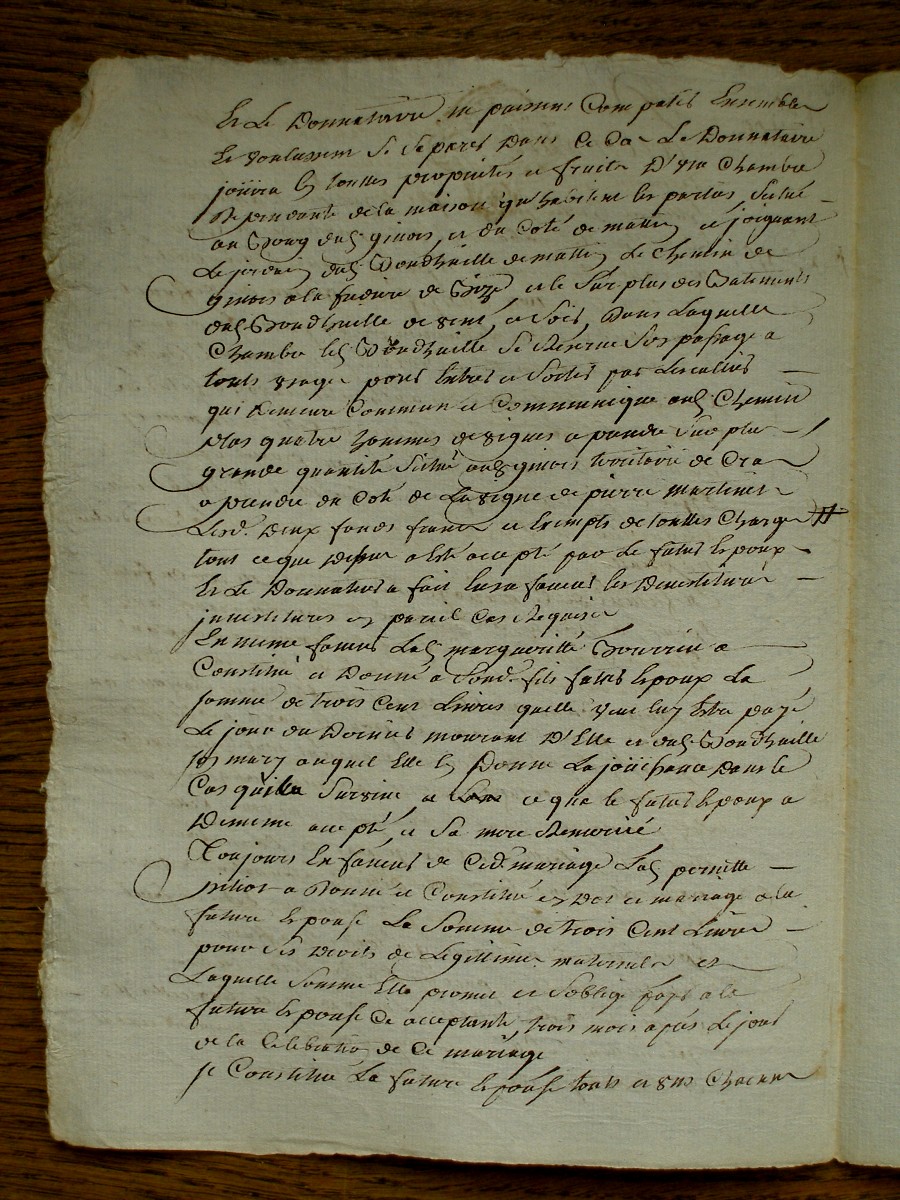 Et Le Donnataire ne puissent Compatir Ensemble
Et voulussent Se Separer Dans Ce Cas Le Donnataire
joüira En touttes proprietés et fruits D'une Chambre
Dependante de la maison qu'habitent les parties Situé
au Bourg dud. ginois, et du Coté de matin et joignant
Le jardin dud. Bondhuille de matin Le Chemin de
ginois a la de et le Surplus des Batiments
dud. Bondhuille de vent, et Soir, Dans Laquelle
Chambre led. Bondhuille Se Reserve Son passage a
touts usages pour Entrer et Sortir par Lescallier
qui Demeure Commun et Communique aud. Chemin
plus quatre hommes de vignes a prendre Sur plus
grande quantité Situé aud. ginois territoire de
a prendre du Coté de La vigne de pierre martinet
Lesd. Deux fonds francs et Exempts de touttes Charges #
tout ce que Dessus a Eté accepté par Le futur Epoux
Et Le Donnateur a fait En sa faveur les Devestitures
jnvestitures en pareil Cas Requises
En meme faveur Lad. margueritte a
Constitué et Donné a Sond. fils futur Epoux La
somme de trois Cent Livres quelle veut luy Estre payé
Le jour du Dernier mourant D'Elle et dud. Bondhuille
son mary auquel Elle En Donne La joüissance Dans le
Cas quil la Survive, et ce que le futur Epoux a
Dememe accepté, et Sa mere Remercié
Toujours En faveur de Ced. mariage Lad. pernette
a Donné et Constitué en Dot et mariage a la
future Epouse La Somme de trois Cent Livres
pour Ses Droits de Legittime maternelle et
Laquelle Somme Elle promet et Soblige payer a la
future Epouse Ce acceptante, trois mois après Le jour
de la Celebration de Ce mariage
Se Constitue La future Epouse touts et uns Chacuns